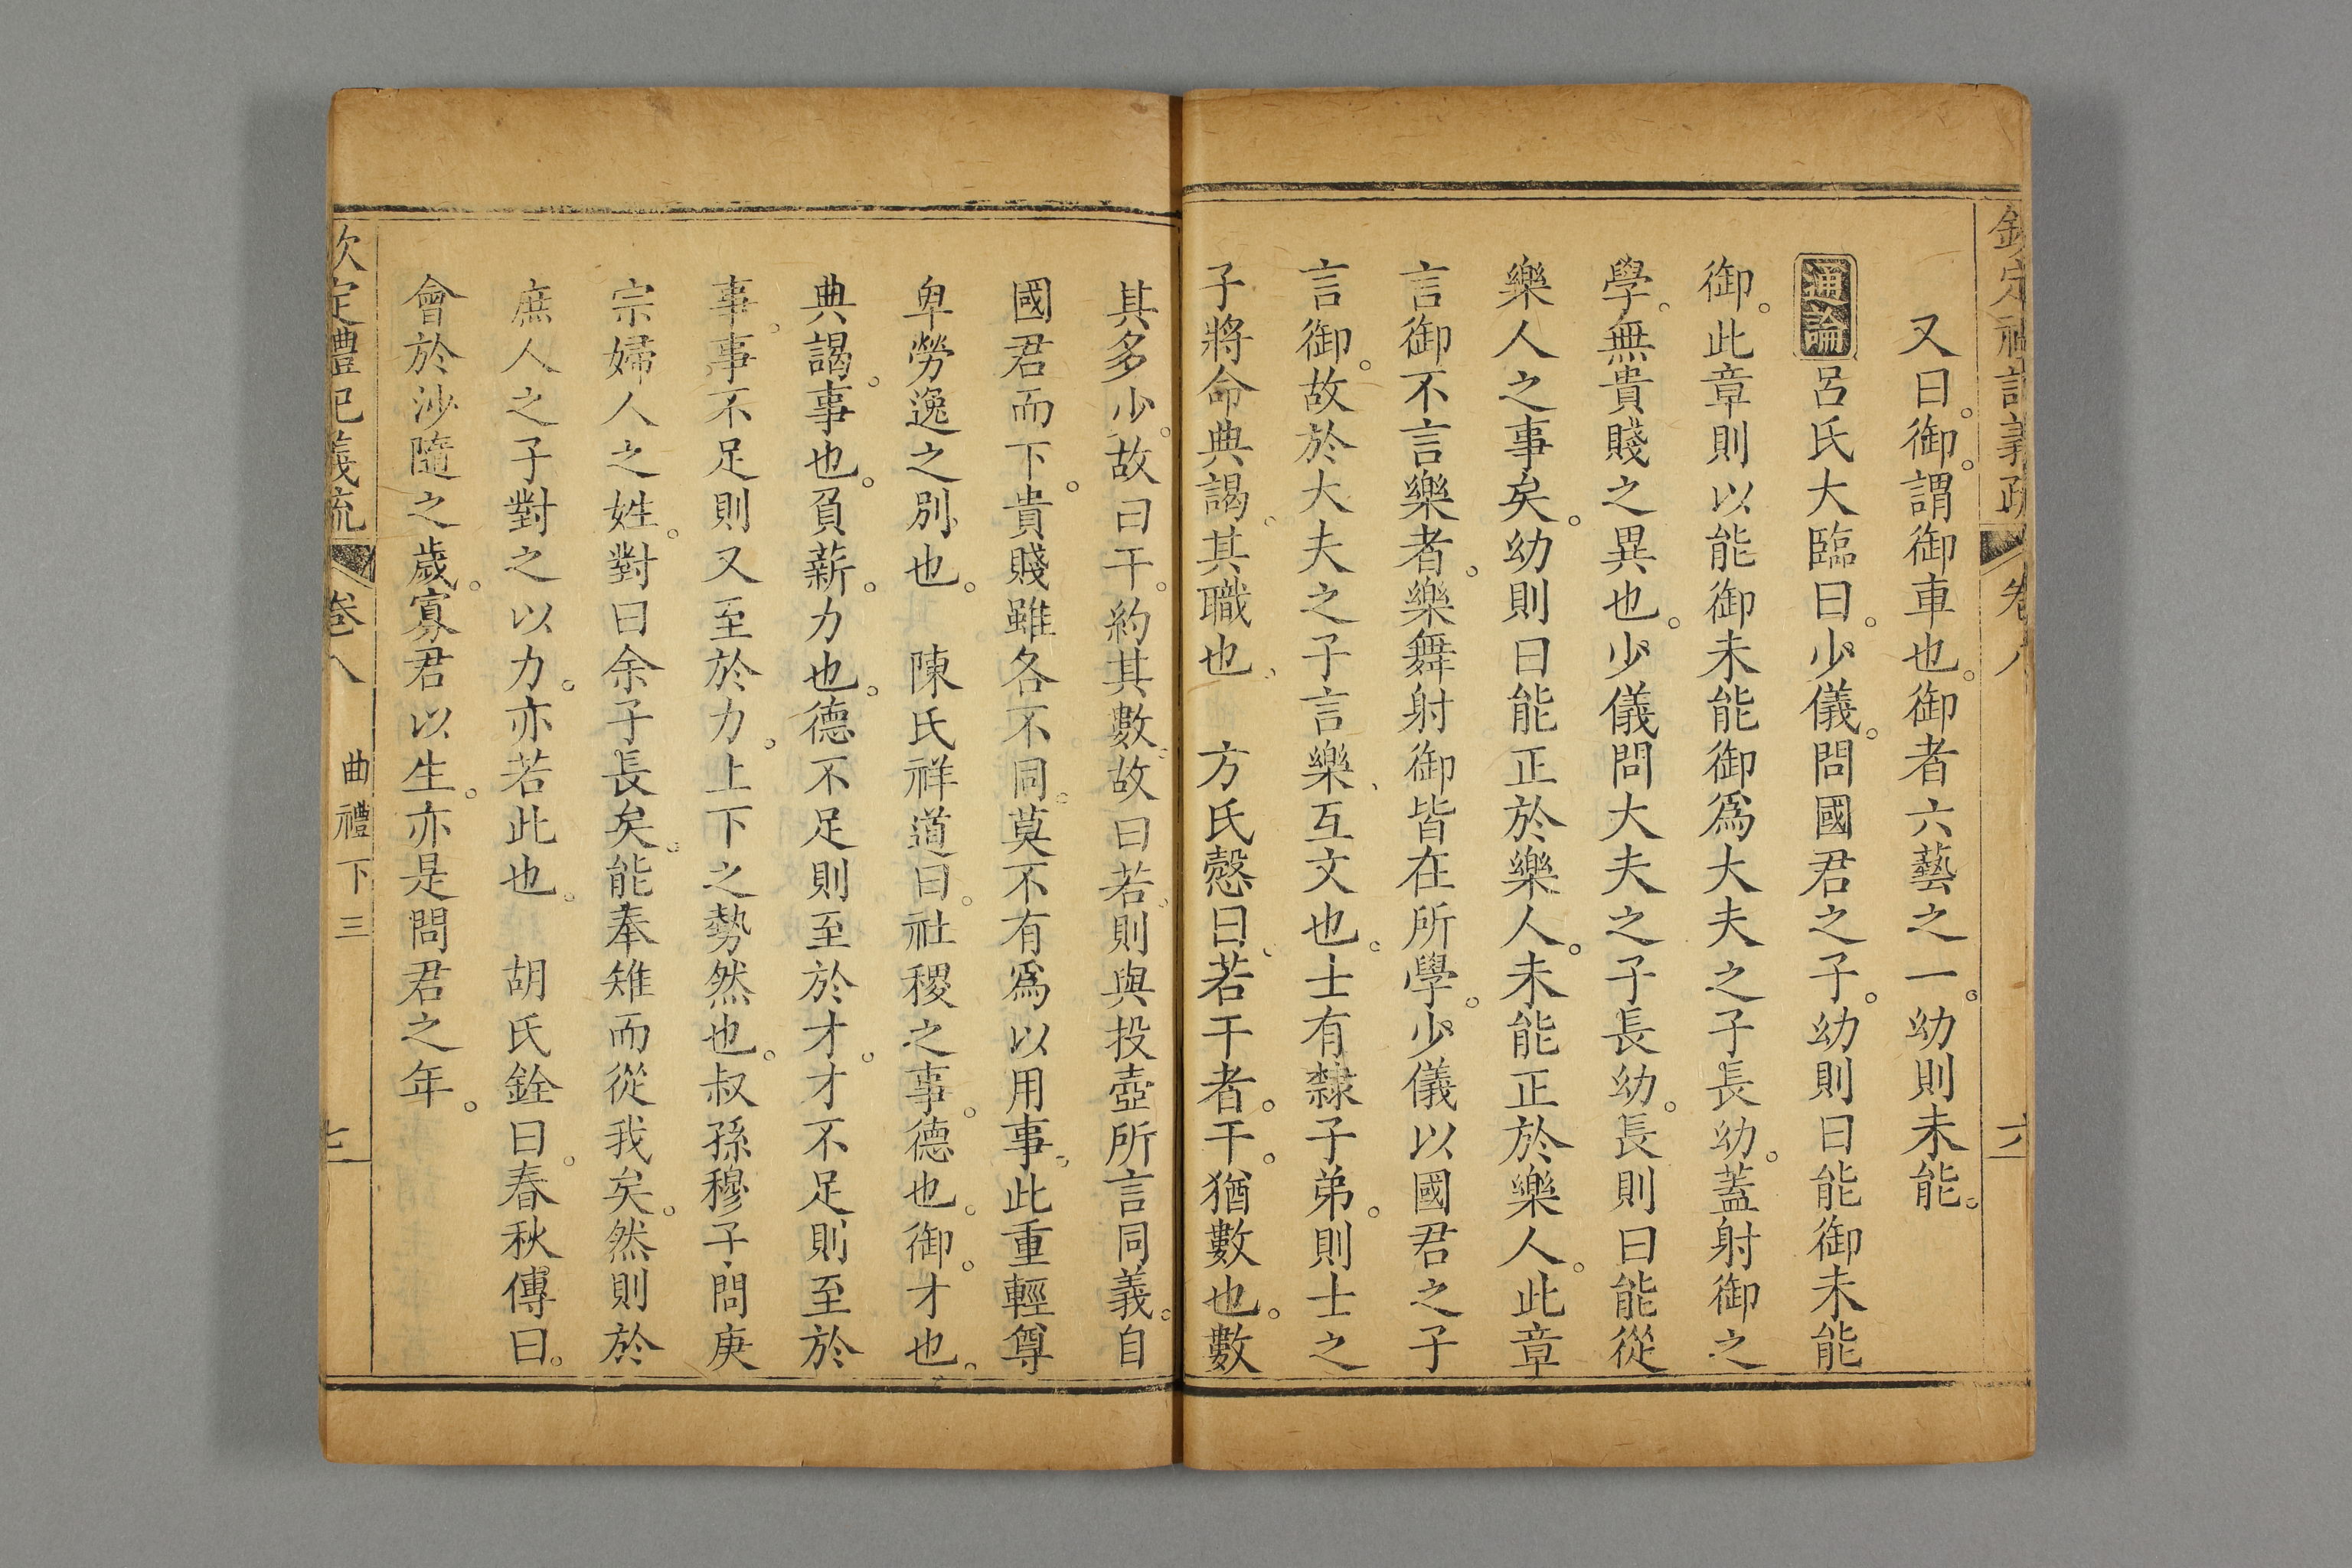 欽定禮記義疏 卷八 六
又曰。御。謂御車也。御者六藝之一。幼則未能。
通論 呂氏大臨曰。少儀。問國君之子。幼則曰能御未能
御。此章則以能御未能御爲大夫之子長幼。蓋射御之
學。無貴賤之異也。少儀問大夫之子長幼。長則曰能從
樂人之事矣。幼則曰能正於樂人。未能正於樂人。此章
言御不言樂者。樂舞射御皆在所學。少儀以國君之子
言御。故於大夫之子言樂、互文也。士有隸子弟。則士之
子將命典謁、其職也、 方氏慤曰、若干者。干。猶數也。數
其多少。故曰干。約其數。故曰若。則與投壺所言同義。自
國君而下。貴賤雖各不同。莫不有爲以用事。此重輕尊
卑勞逸之別也。 陳氏祥道曰。社稷之事。德也。御。才也。
典謁。事也。負薪。力也。德不足則至於才。才不足則至於
事。事不足則又至於力。上下之勢然也。叔孫穆子問庚
宗婦人之姓。對曰余子長矣。能奉雉而從我矣。然則於
庶人之子對之以力。亦若此也。 胡氏銓曰。春秋傳曰。
會於沙隨之歲。寡君以生。亦是問君之年。
欽定禮記義疏 卷八 曲禮下三 七